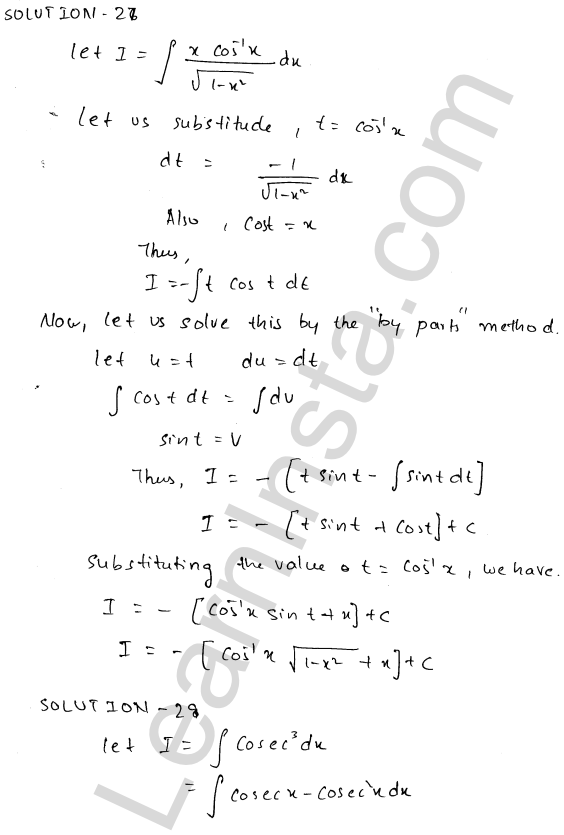 SOLUTION - 27
let I = ∫ x cos⁻¹x / √(1-x²) dx
Let us substitude, t = cos⁻¹x
dt = -1 / √(1-x²) dx
Also, cost = x
Thus,
I = -∫ t cos t dt
Now, let us solve this by the "by parts" method.
let u = t du = dt
∫ cos t dt = ∫ dv
sint = v
Thus, I = - [t sint - ∫ sint dt]
I = - [t sint + cost] + c
Substituting the value o t = cos⁻¹x, we have.
I = - [cos⁻¹x sin t + x] + c
I = - [cos⁻¹x √(1-x²) + x] + c
SOLUTION - 28
let I = ∫ cosec³ dx
= ∫ cosec x - cosec²x dx
LearnInsta.com